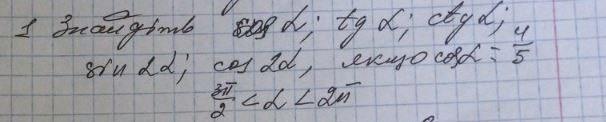 1 Знайдіть sin α; tg α; ctg α;
sin 2α; cos 2α, якщо cos α = 4/5
3π/2 < α < 2π